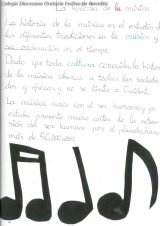 Colegio Diocesano Oratorio Festivo de Novelda
La historia de la música.
La historia de la música es el estudio de
las diferentes tradiciones en la música y
su ordenación en el tiempo.
Dado que toda cultura conocida, la historia
de la música abarca a todas las socieda-
des y épocas y no se limita a Occidente.
La música nace con el ser humano, y ya
estaba presente mucho antes de la exten-
sión del ser humano por el planeta, hace
más de 50.000 años.